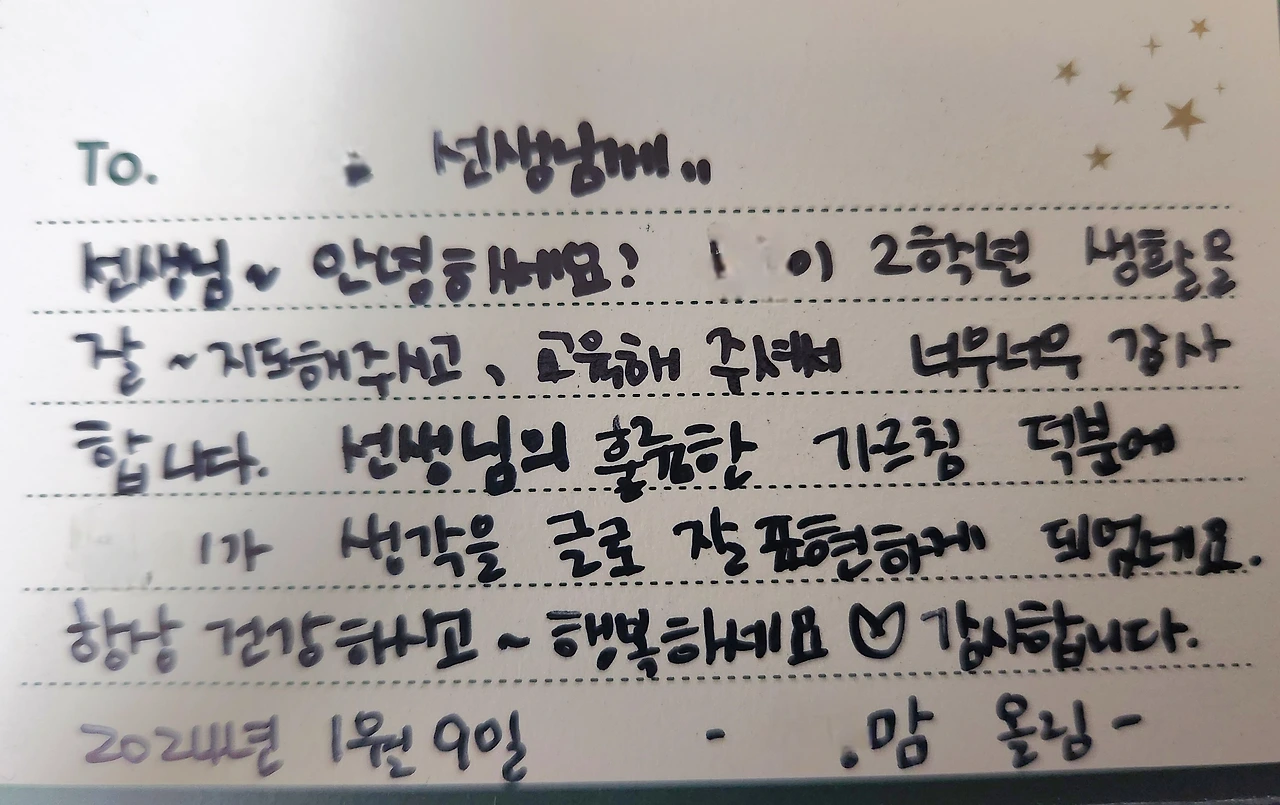 To. 선생님께..
선생님~ 안녕하세요? 이 2학년 생활을
잘 ~지도해주시고, 교육해 주셔서 너무너무 감사
합니다. 선생님의 훌륭한 가르침 덕분에
가 생각을 글로 잘 표현하게 되었네요.
항상 건강하시고 ~ 행복하세요 ♡ 감사합니다.
2024년 1월 9일 - 맘 올림 -